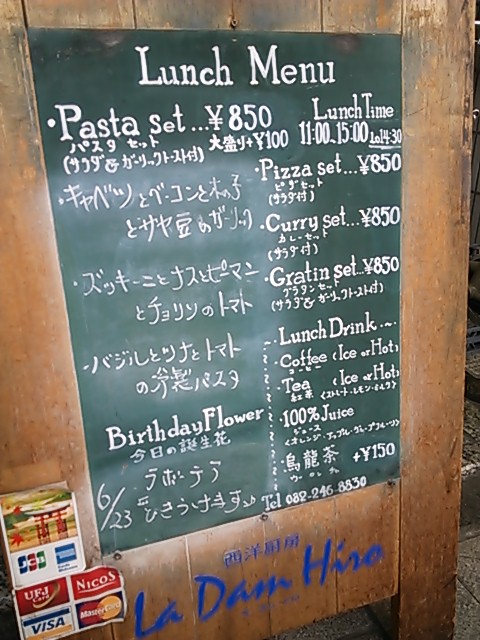 Lunch Menu
・Pasta set...¥850
パスタ セット 大盛り+¥100
(サラダ&ガーリックトースト付)
Lunch Time
11:00~15:00 Lo14:30
・キャベツとベーコンと木の子
とサヤ豆のガーリック
・ズッキーニとナスとピーマン
とチョリソのトマト
・バジルとツナとトマト
の冷製パスタ
・Pizza set...¥850
ピザセット
(サラダ付)
・Curry set...¥850
カレーセット
(サラダ付)
・Gratin set...¥850
グラタンセット
(サラダ&ガーリックトースト付)
Lunch Drink
・Coffee (Ice or Hot)
コーヒー
・Tea (Ice or Hot)
紅茶 (ストレート・レモン・ミルク)
・100% Juice
ジュース
(オレンジ・アップル・グレープフルーツ)
・烏龍茶 +¥150
ウーロンチャ
Birthday Flower
今日の誕生花
6/23
ひきうけます
Tel 082-246-8830
西洋厨房
La Dam Hiro
JCB
AMERICAN EXPRESS
UFJ Card
NICOS
VISA
MasterCard